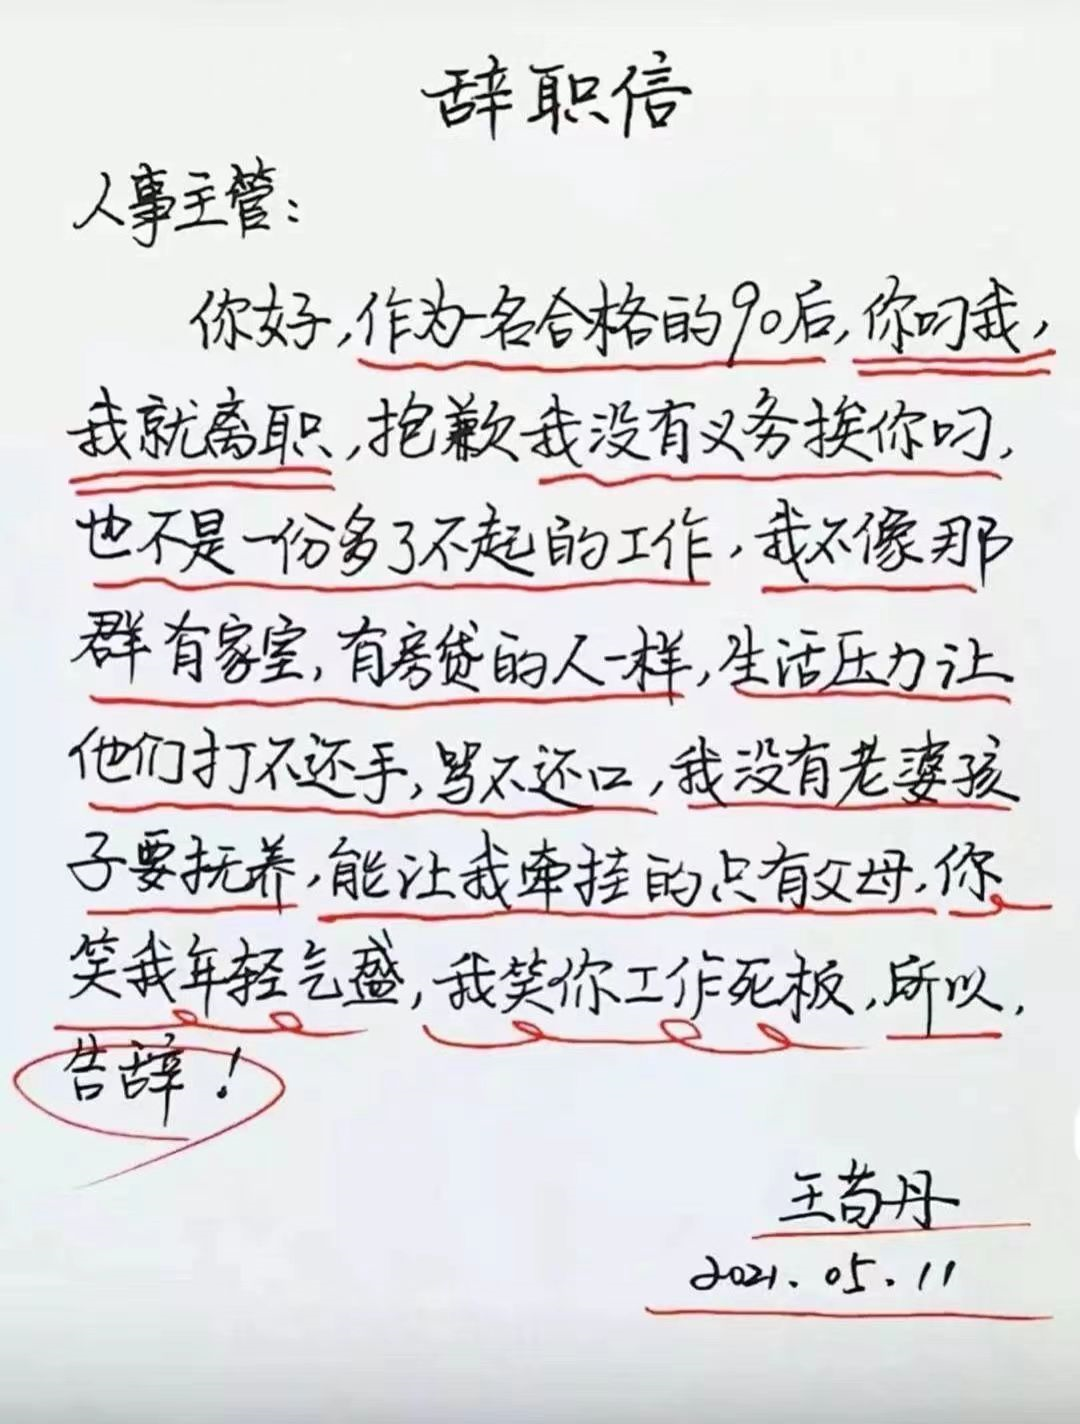 辞职信
人事主管:
你好,作为一名合格的90后,你叼我,
我就离职,抱歉我没有义务挨你叼,
也不是一份多了不起的工作,我不像那
群有家室,有房贷的人一样,生活压力让
他们打不还手,骂不还口,我没有老婆孩
子要抚养,能让我牵挂的只有父母,你
笑我年轻气盛,我笑你工作死板,所以,
告辞!
王苟丹
2021.05.11